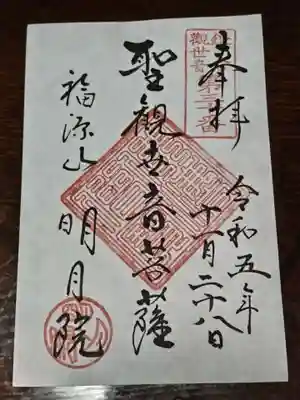 奉拝
令和五年
十一月二十八日
聖観世音菩薩
福源山
明月院
観世音
三十番